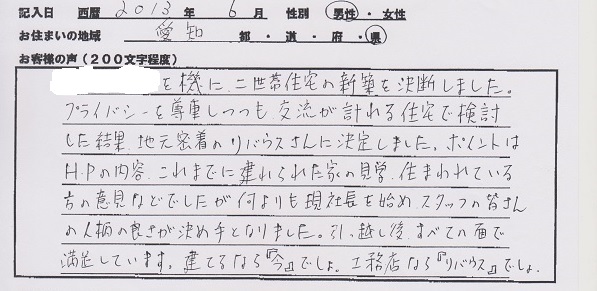 記入日 西暦 2013 年 6 月 性別 男性・女性
お住まいの地域 愛知 都・道・府・県
お客様の声(200文字程度)
を機に、二世帯住宅の新築を決断しました。
プライバシーを尊重しつつも交流が計れる住宅で検討
した結果、地元密着のリバウスさんに決定しました。ポイントは
H.Pの内容、これまでに建れられた家の見学、住まわれている
方の意見などでしたが何よりも現社長を始め、スタッフの皆さん
の人柄の良さが決め手となりました。引っ越し後、すべての面で
満足しています。建てるなら『今』でしょ。工務店なら『リバウス』でしょ。